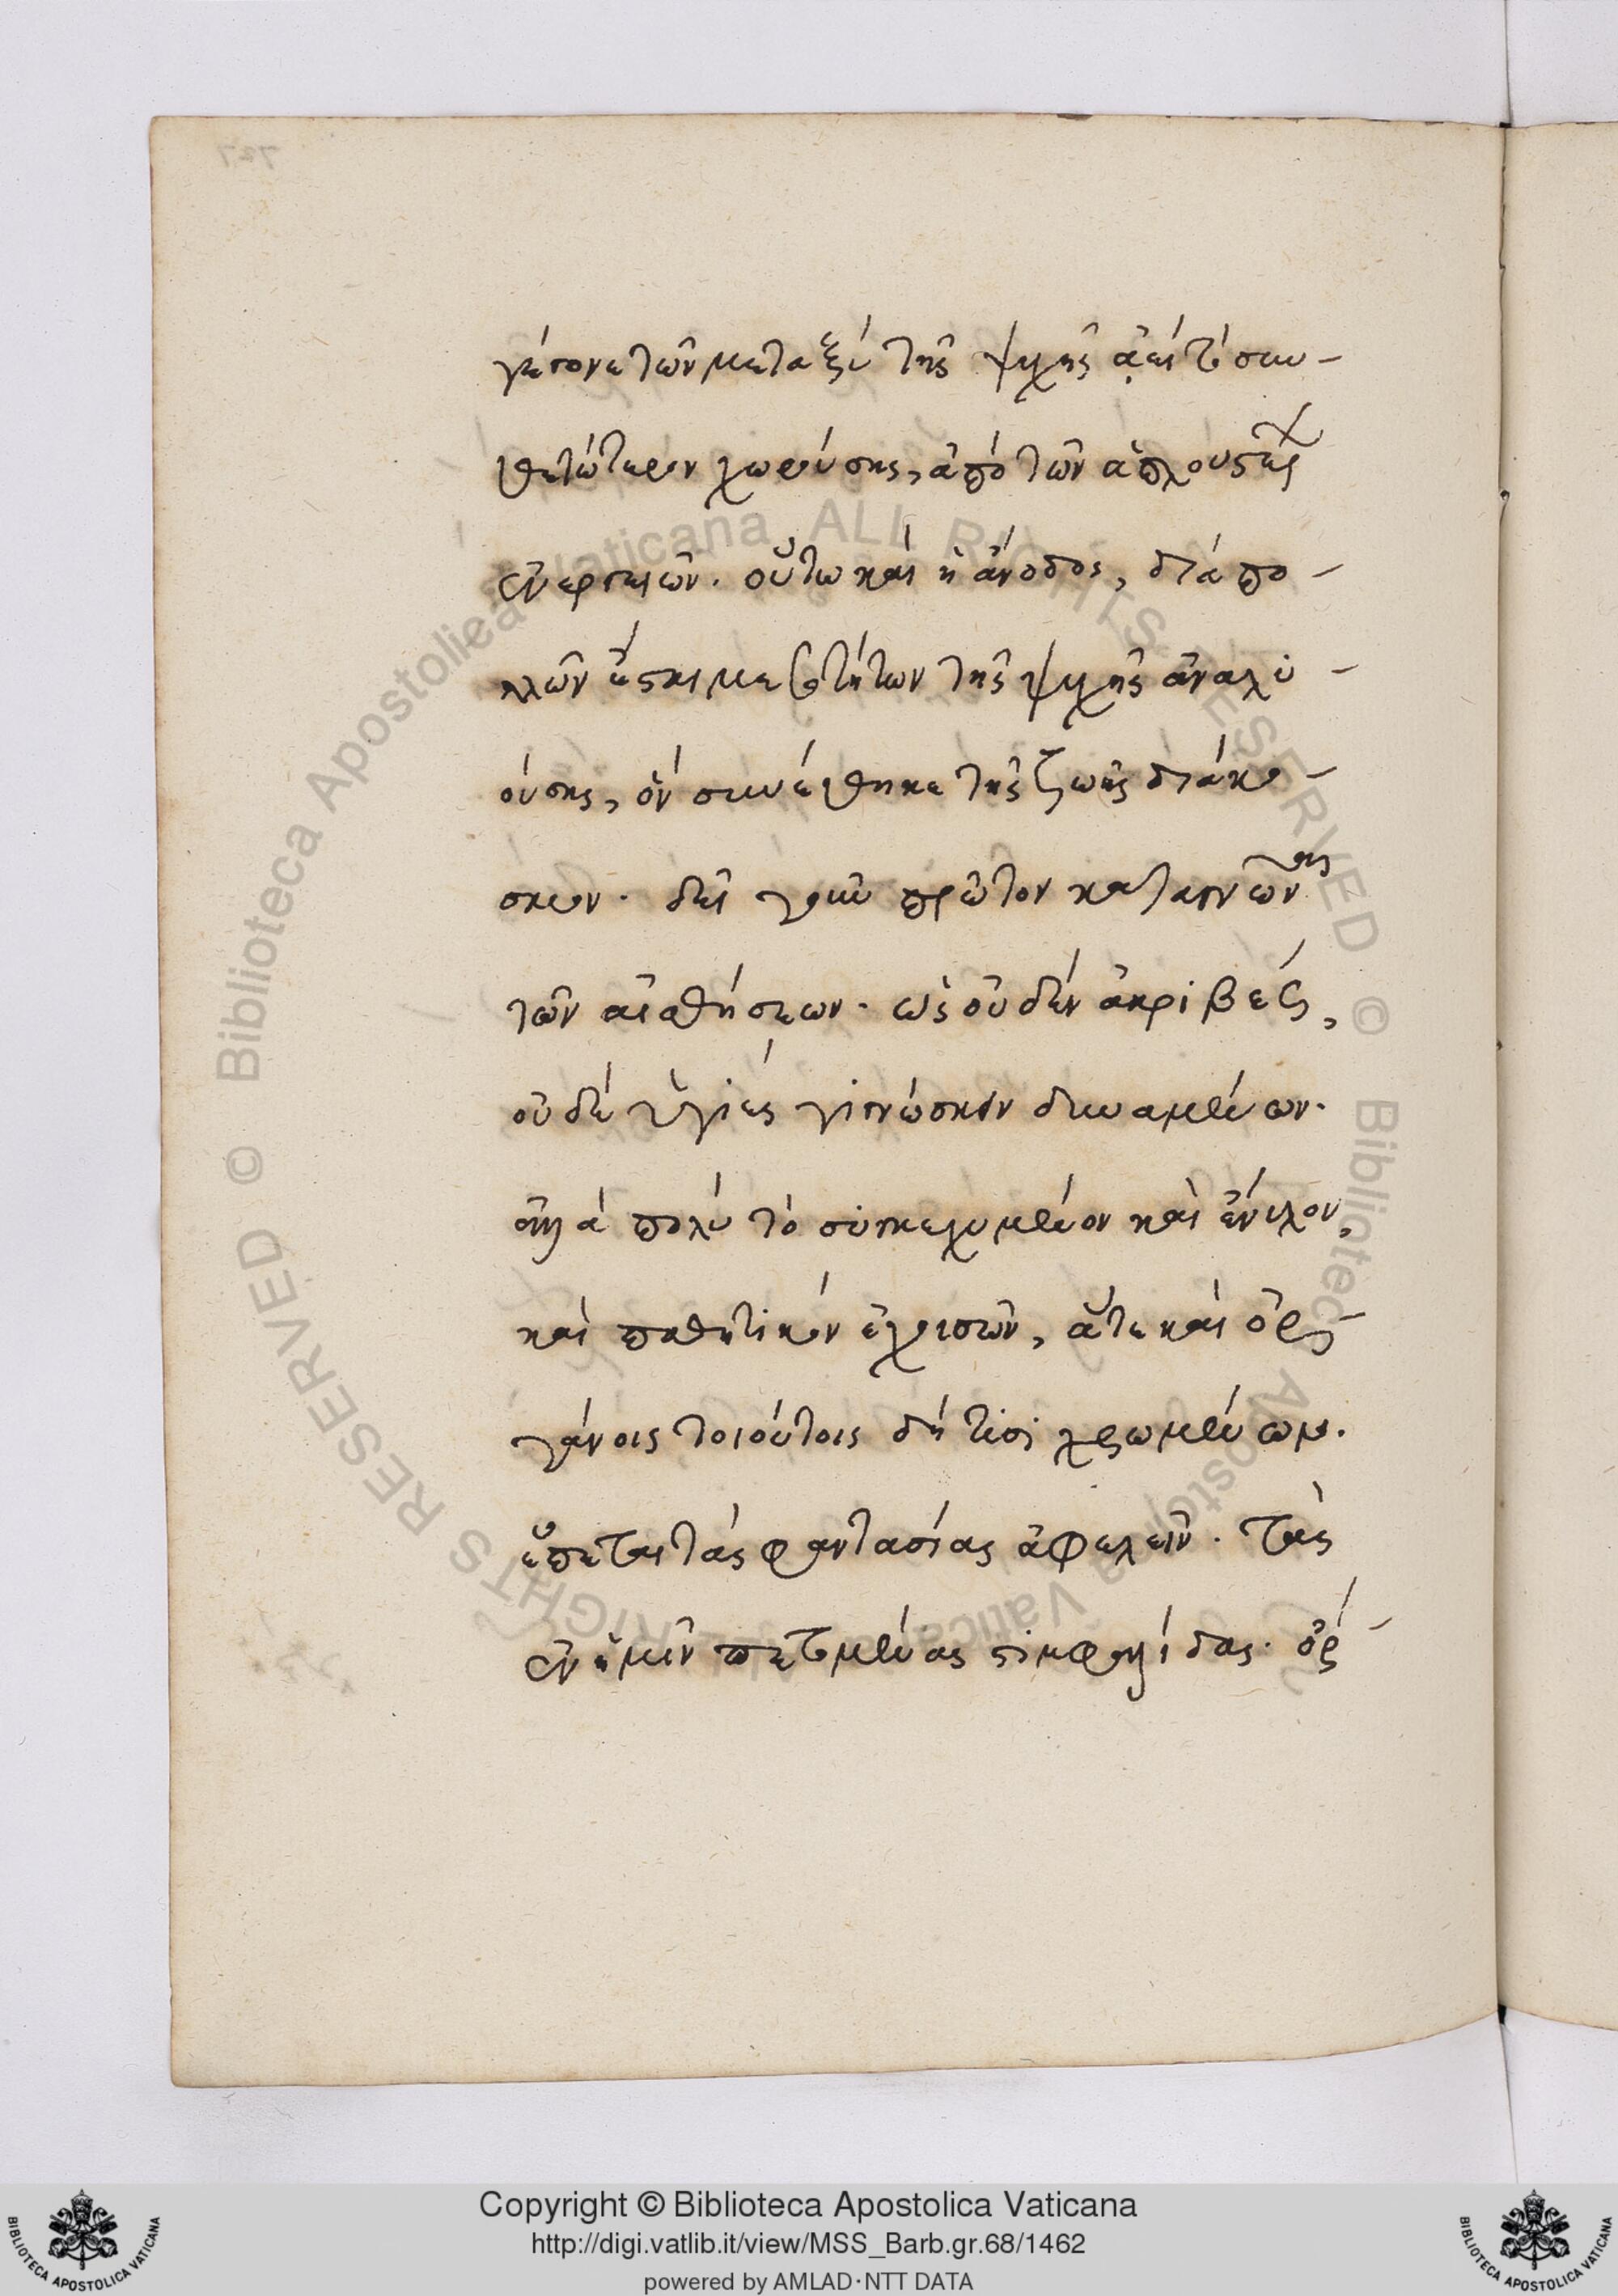 γέγονε τῶν μεταξὺ τῆς ψυχῆς ἀεὶ τὸ συν-
θετώτερον χωρούσης, ἀπὸ τῶν ἁπλουστέρ
ἐνεργειῶν. οὕτω καὶ ἡ ἄνοδος, διὰ πο-
λλῶν ἔσται μεσοτήτων τῆς ψυχῆς ἀναλυ-
ούσης, ὃν συνέθηκε τῆς ζωῆς διάκο-
σμον. δεῖ γοῦν πρῶτον καταγνῶναι
τῶν αἰσθήσεων. ὡς οὐδὲν ἀκριβὲς,
οὐδὲ ὑγιὲς γινώσκειν δυναμένων.
ἀλλὰ πολὺ τὸ συγκεχυμένον καὶ ἔνυλον,
καὶ παθητικὸν ἐχουσῶν, ἅτε καὶ ὀρ-
γάνοις τοιούτοις δή τισι χρωμένων.
ἕπεται τὰς φαντασίας ἀφελεῖν. τὰς
ἐν ἡμῖν πετομένας στυμφαλίδας. ὀρ-
Copyright © Biblioteca Apostolica Vaticana
http://digi.vatlib.it/view/MSS_Barb.gr.68/1462
powered by AMLAD·NTT DATA